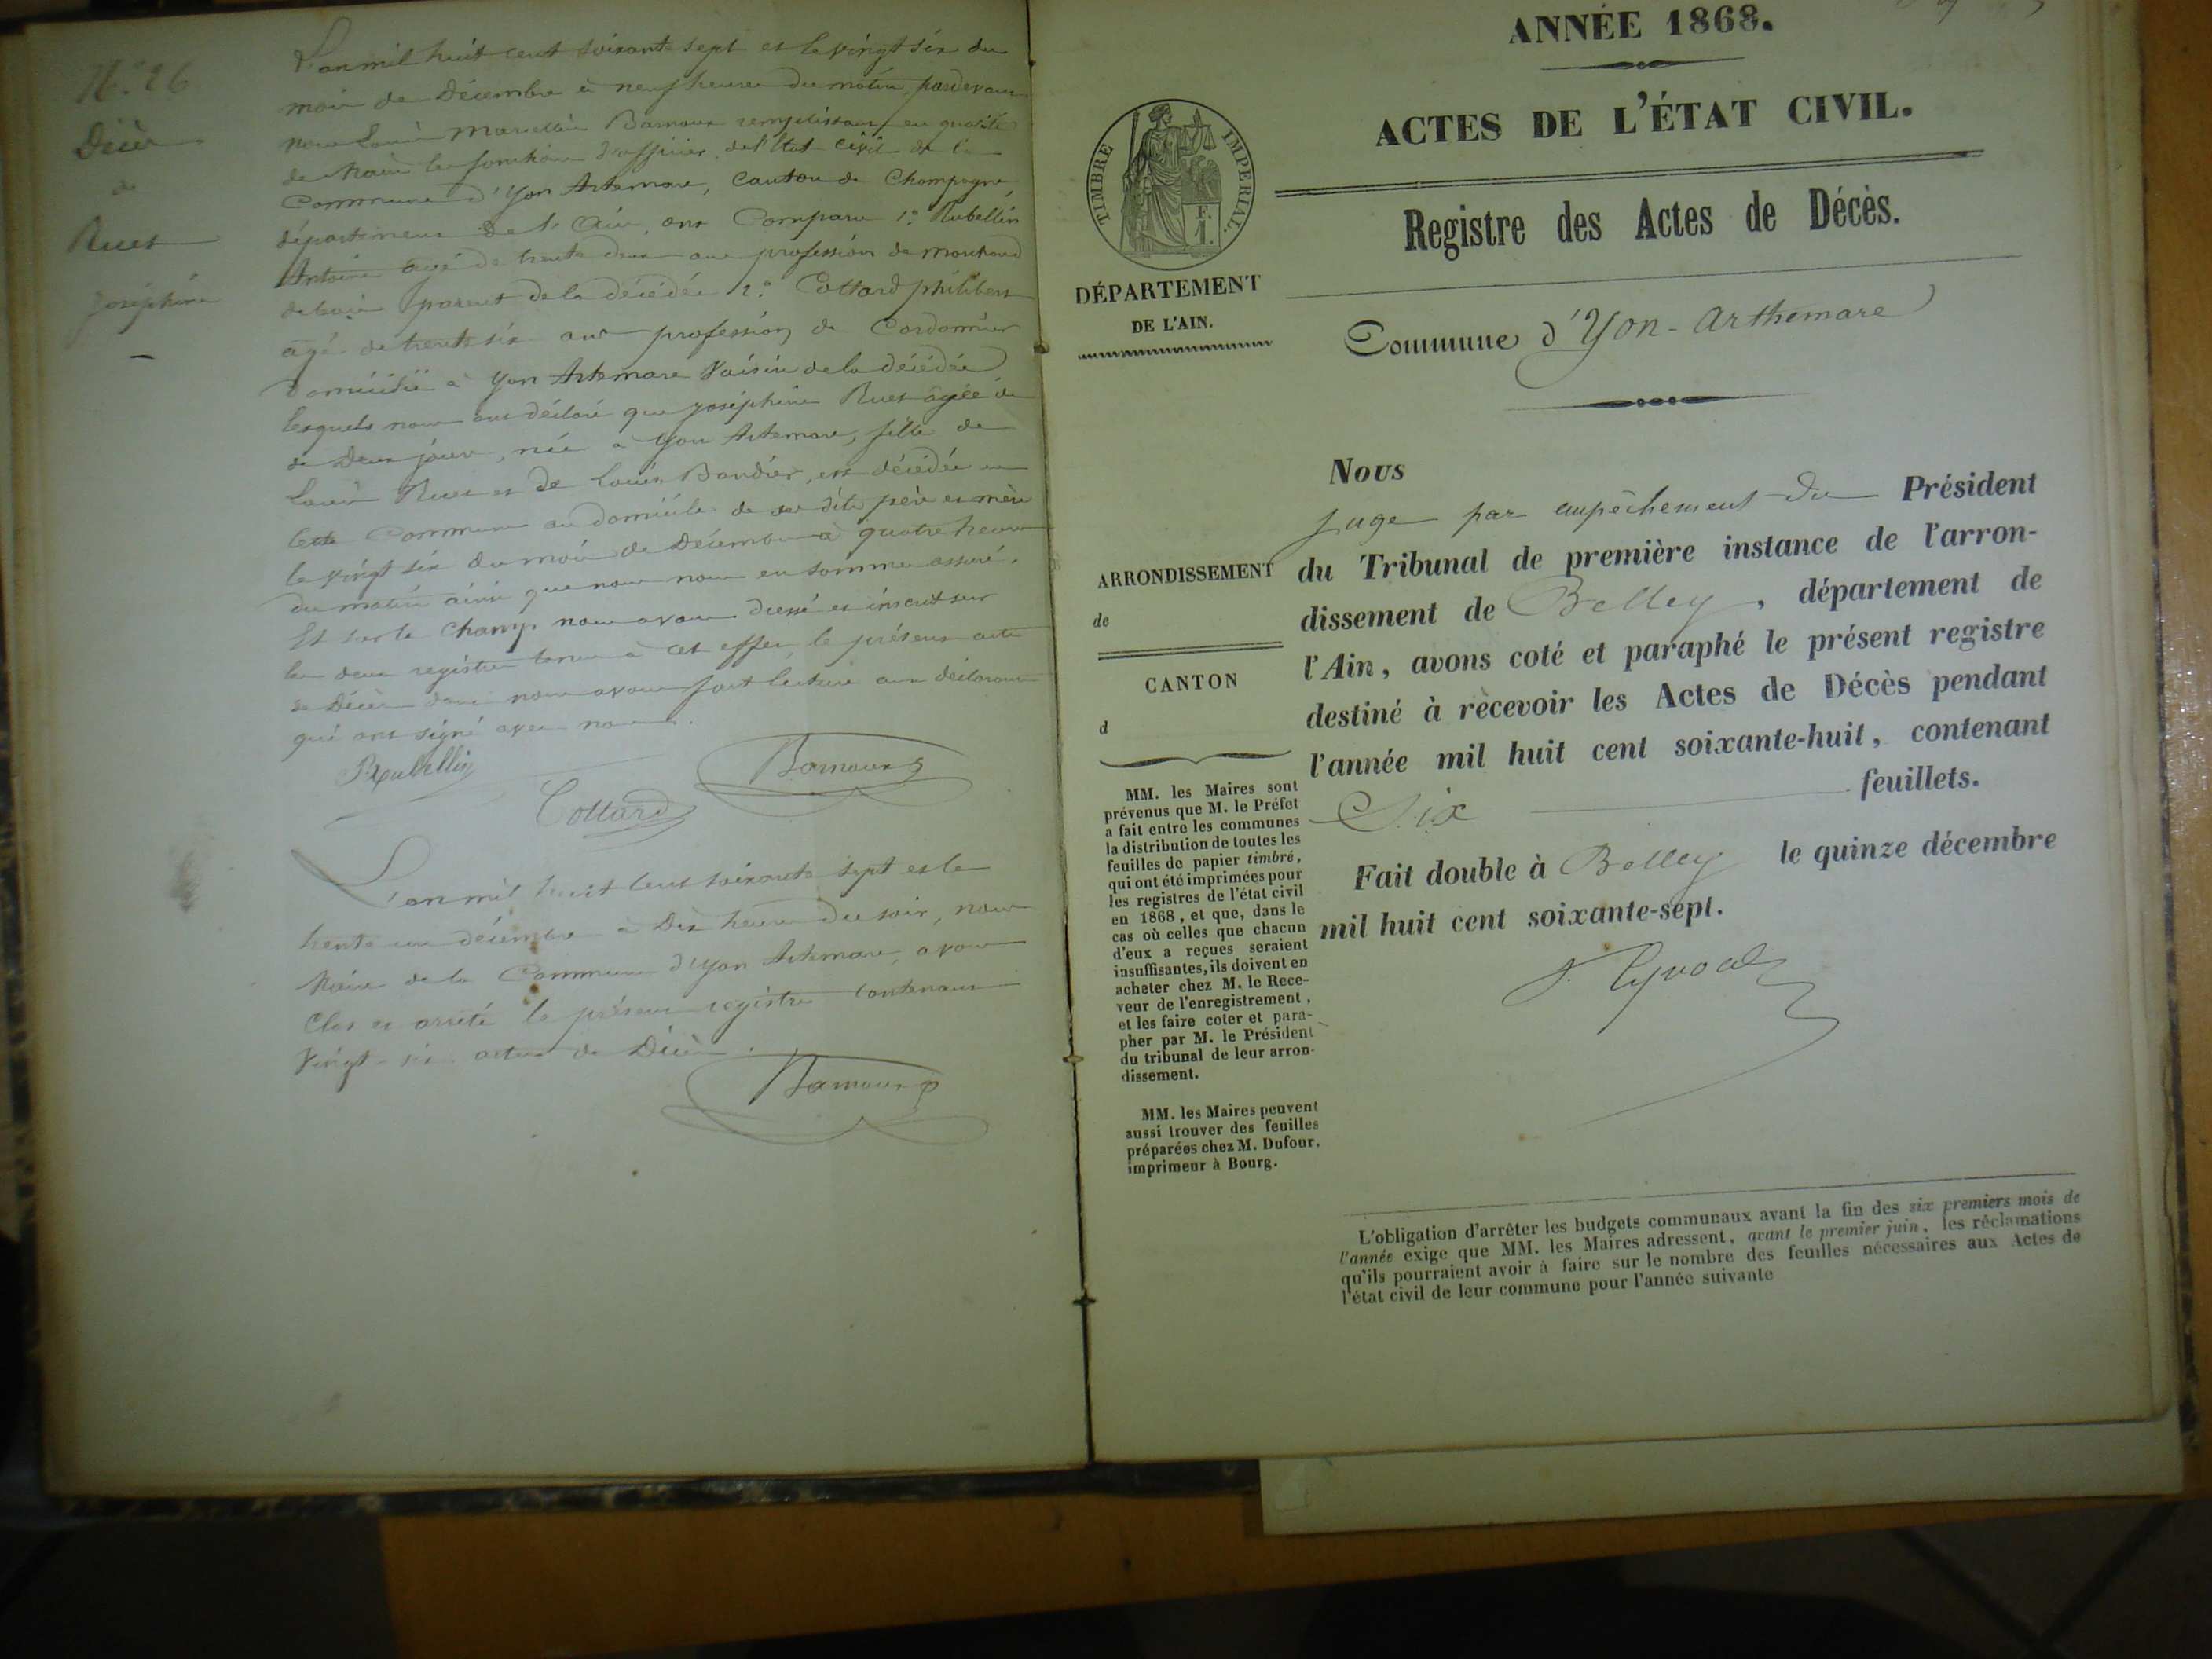 N° 26
Décès
de
Ruet
Joséphine
L'an mil huit cent soixante sept et le vingt six du
mois de Décembre à neuf heures du matin, pardevant
nous Louis Marcellin Barnoux remplissant en qualité
de Maire les fonctions d'officier de l'Etat civil de la
Commune d'Yon Artemare, Canton de Champagne,
département de l'Ain, ont Comparu 1° Rubellin
Antoine agé de trente deux ans profession de marchand
de bois parent de la décédée 2° Cottard philibert
agé de trente six ans profession de Cordonnier
domicilié à Yon Artemare Voisin de la décédée
lesquels nous ont déclaré que Joséphine Ruet agée de
de Deux jours, née à Yon Artemare, fille de
Louis Ruet et de Louise Bondier, est décédée en
cette Commune au domicile de ses dits père et mère
le vingt six du mois de Décembre à quatre heures
du matin ainsi que nous nous en sommes assuré.
Et sur le champ nous avons dressé et inscrit sur
les deux registres tenus à cet effet, le présent acte
de Décès dont nous avons fait lecture aux déclarants
qui ont signé avec nous.
Rubellin
Barnoux
Cottard
L'an mil huit cent soixante sept et le
trente un décembre à Dix heures du soir, nous
Maire de la Commune d'Yon Artemare, avons
Clos et arrêté le présent registre contenant
Vingt-six actes de Décès.
Barnoux
ANNÉE 1868.
ACTES DE L'ÉTAT CIVIL.
Registre des Actes de Décès.
TIMBRE IMPERIAL.
DÉPARTEMENT
DE L'AIN.
Commune d'Yon-Arthemare
ARRONDISSEMENT
de
CANTON
d
MM. les Maires sont
prévenus que M. le Préfet
a fait entre les communes
la distribution de toutes les
feuilles de papier timbré,
qui ont été imprimées pour
les registres de l'état civil
en 1868, et que, dans le
cas où celles que chacun
d'eux a reçues seraient
insuffisantes, ils doivent en
acheter chez M. le Rece-
veur de l'enregistrement,
et les faire coter et para-
pher par M. le Président
du tribunal de leur arron-
dissement.
MM. les Maires peuvent
aussi trouver des feuilles
préparées chez M. Dufour,
imprimeur à Bourg.
Nous
juge par empêchement du Président
du Tribunal de première instance de l'arron-
dissement de Belley, département de
l'Ain, avons coté et paraphé le présent registre
destiné à recevoir les Actes de Décès pendant
l'année mil huit cent soixante-huit, contenant
Six feuillets.
Fait double à Belley le quinze décembre
mil huit cent soixante-sept.
L'obligation d'arrêter les budgets communaux avant la fin des six premiers mois de
l'année exige que MM. les Maires adressent, avant le premier juin, les réclamations
qu'ils pourraient avoir à faire sur le nombre des feuilles nécessaires aux Actes de
l'état civil de leur commune pour l'année suivante